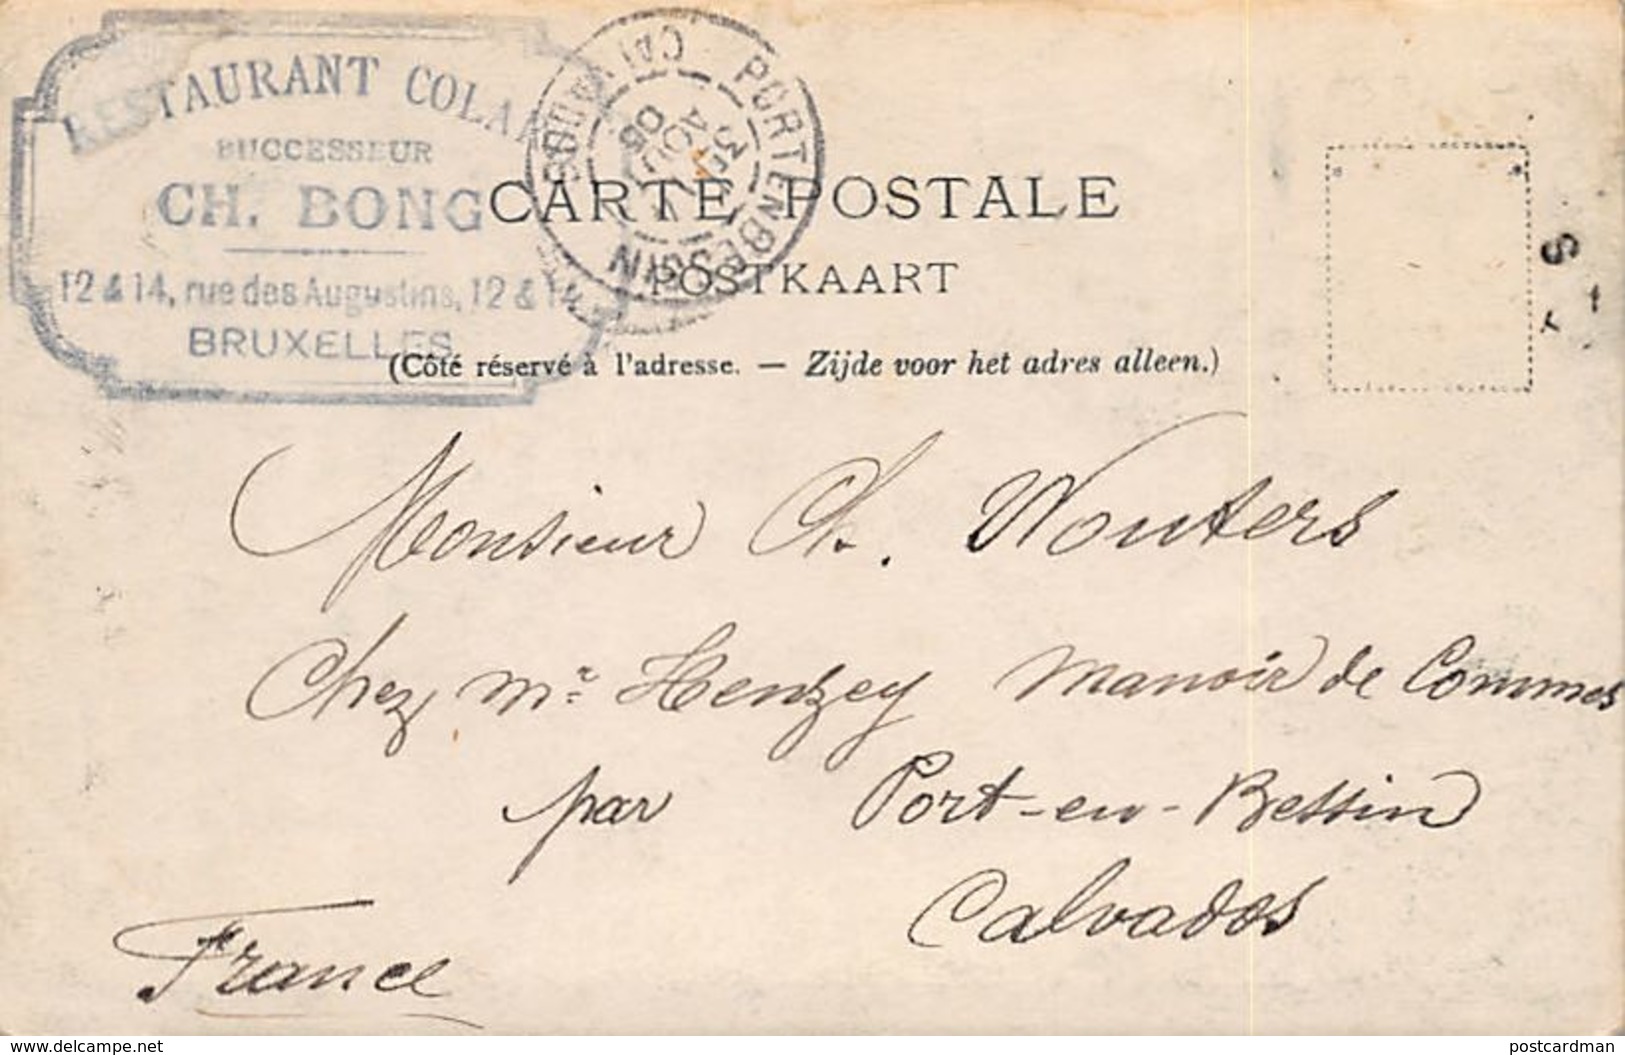 RESTAURANT COLA
SUCCESSEUR
CH. BONG
12 & 14, rue des Augustins, 12 & 14
BRUXELLES
PORT EN BESSIN
CALVADOS
AOUT
05
CARTE POSTALE
POSTKAART
(Côté réservé à l'adresse. — Zijde voor het adres alleen.)
Monsieur Ch. Wouters
Chez Mr Henzey Manoir de Commes
par Port-en-Bessin
Calvados
France
www.delcampe.net
postcardman